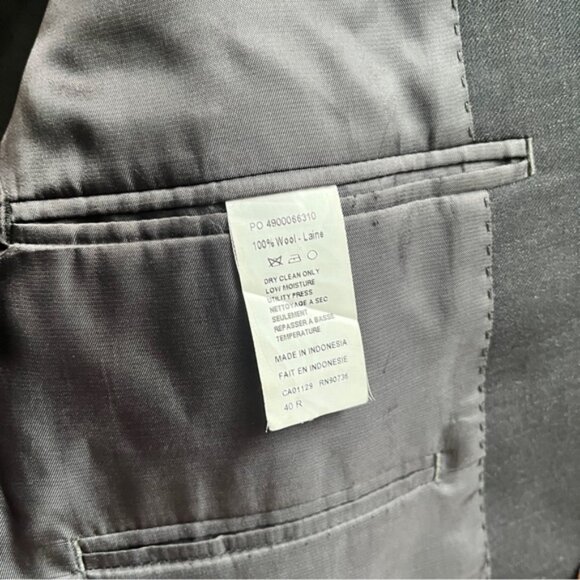 PO 4900066310
100% Wool - Laine
DRY CLEAN ONLY
LOW MOISTURE
UTILITY PRESS
NETTOYAGE A SEC
SEULEMENT
REPASSER A BASSE
TEMPERATURE
MADE IN INDONESIA
FAIT EN INDONESIE
CA01129 RN90736
40 R